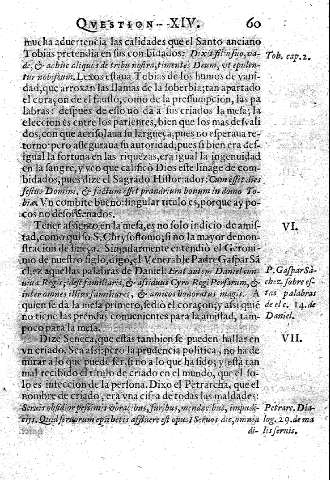 QVESTION--XIV. 60
mucha aduertencia las calidades que el Santo anciano
Tobias pretendia en sus combidados: Dixit filio suo, va-
de, & adhuc aliquos de tribu nostra, timentes Deum, et epulen-
tur nobiscum. Lexos estaua Tobias de los humos de vani-
dad, que arroxan las llamas de la soberbia; tan apartado
el coraçon de el fausto, como de la pressumpcion, las pa
labras: despues de esso no dà a sus criados la mesa; la
eleccion es entre los parientes, bien que los mas desvali-
dos, con que acrisolaua su largueça, pues no esperaua re-
torno: pero asseguraua su autoridad, pues si bien era des-
igual la fortuna en las riquezas, era igual la ingenuidad
en la sangre, y vèo que calificò Dios este linage de com-
bidados, pues dize el Sagrado Historiador: Cum esset dies
festus Domini, & factum esset prandium bonum in domo To-
biæ. Vn combite bueno: singular titulo es, porque ay po-
cos no desordenados.
Tob. cap. 2.
Tener assiento en la mesa, es no solo indicio de amis-
tad, como quiso S. Chrysostomo; si no la mayor demos-
tracion de fineça. Singularmente entendiò el Geroni-
mo de nuestro siglo, digo, el Venerable Padre Gaspar Sã
chez aquellas palabras de Daniel. Erat autem Daniel con-
uiua Regis; idest familiaris, & assiduus Cyro Regi Persarum, &
inter omnes illius familiares, & amicos honoratus magis. A
quien se dà la mesa primero, se diò el coraçon; y assi que
no tiene las prendas conuenientes para la amistad, tam-
poco para la mesa.
VI.
P. Gaspar Sã-
chez. sobre es-
tas palabras
de el c. 14. de
Daniel.
Dize Seneca, que estas tambien se pueden hallar en
vn criado. Sea assi; pero la prudencia politica, no ha de
mirar a lo que puede ser, si no a lo que ha sido; y està tan
mal recibido el titulo de criado en el mundo, que el so-
lo es infeccion de la persona. Dixo el Petrarcha, que el
nombre de criado, era vna cifra de todas las maldades:
di-
VII.
Petrarc. Dia-
log. 29. de ma
lis seruis.